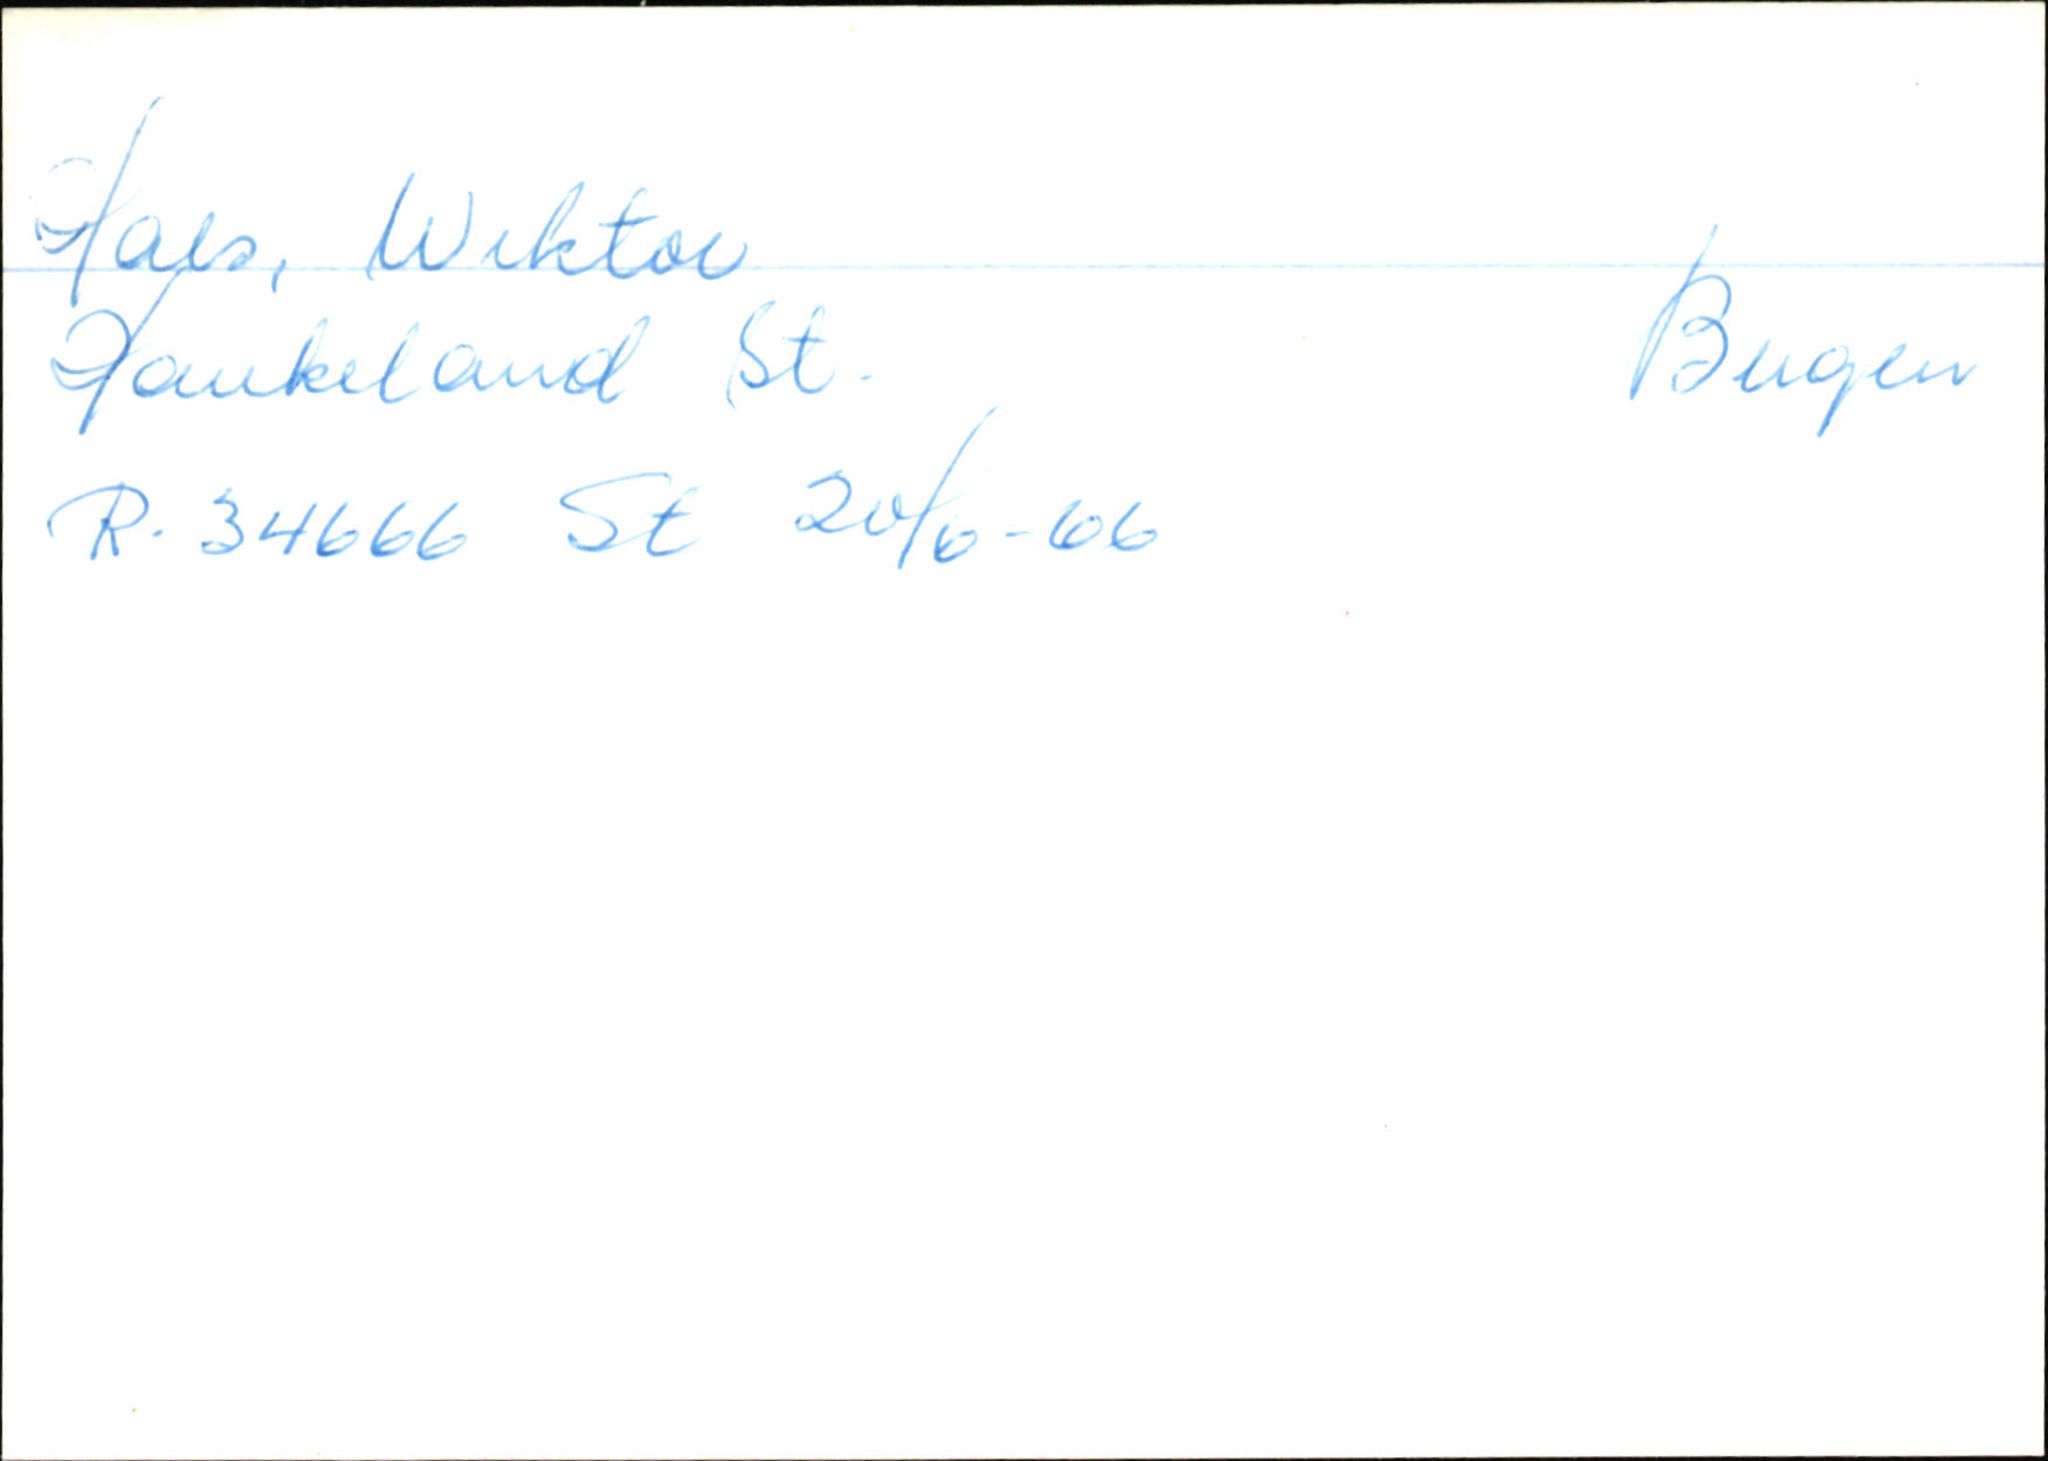 Hals, Wiktor
Haukeland St. Bergen
R. 34666 St 20/6-66